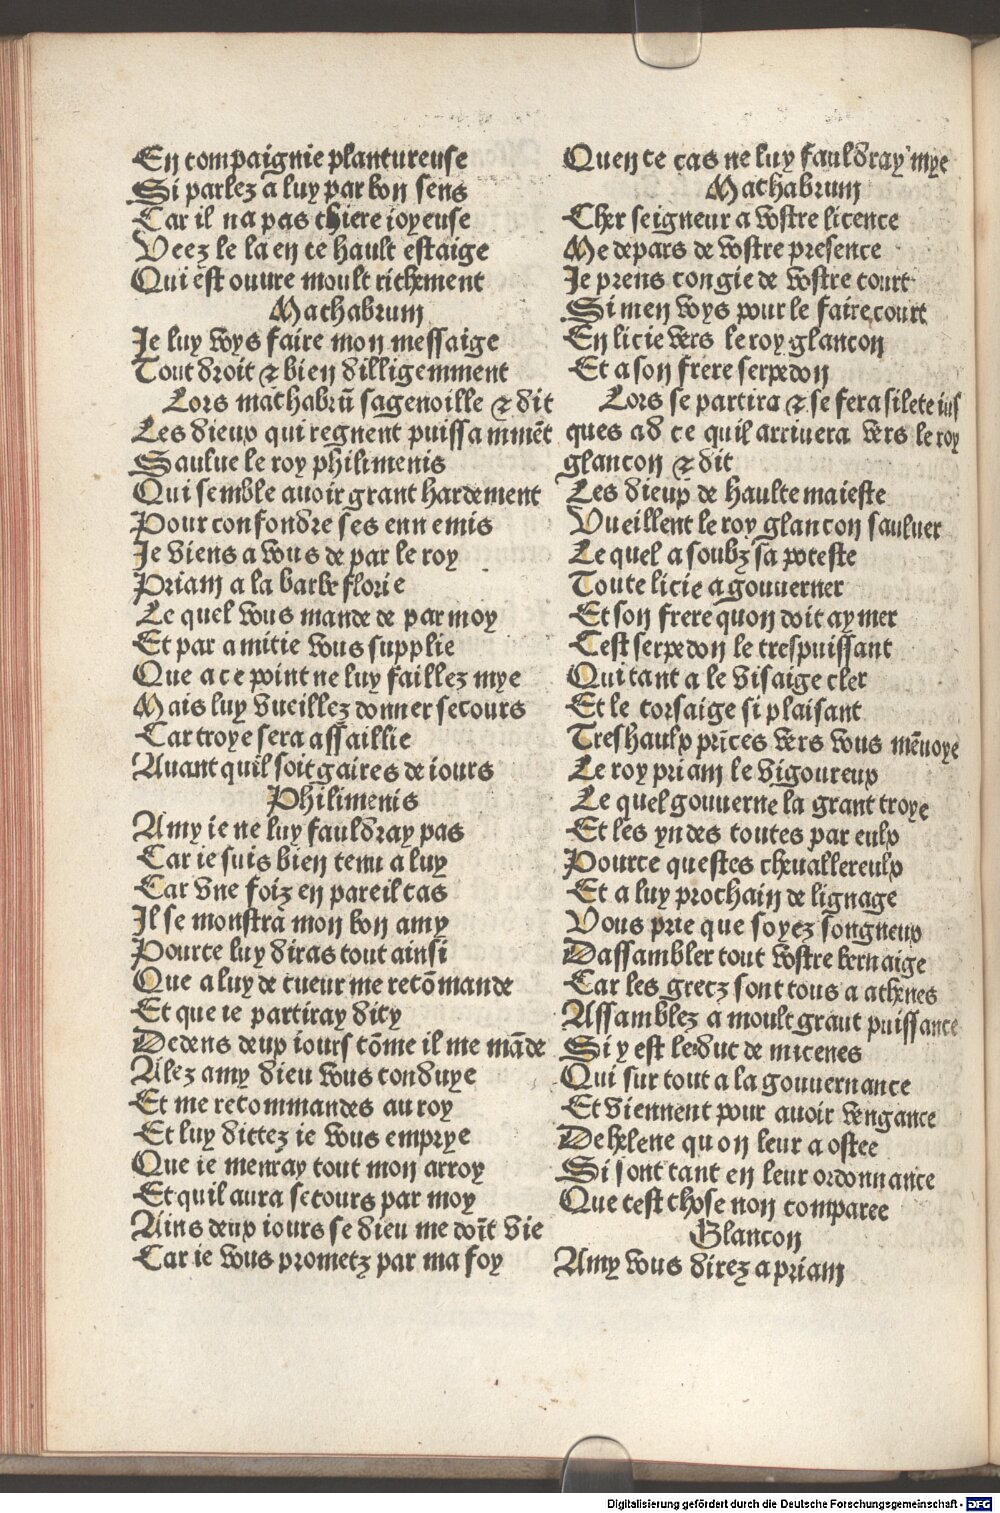 En compaignie plantureuse
Si parlez a luy par bon sens
Car il na pas chiere ioyeuse
Veez le la en ce hault estaige
Qui est ouure moult richement
Machabrum
Je luy voys faire mon messaige
Tout droit ⁊ bien dilligemment
Lors machabrū sagenoille ⁊ dit
Les dieux qui regnent puissammēt
Saulue le roy philimenis
Qui semble auoir grant hardement
Pour confondre ses ennemis
Je viens a vous de par le roy
Priam a la barbe florie
Le quel vous mande de par moy
Et par amitie vous supplie
Que a ce point ne luy faillez mye
Mais luy vueillez donner secours
Car troye sera assaillie
Auant quil soit gaires de iours
Philimenis
Amy ie ne luy fauldray pas
Car ie suis bien tenu a luy
Car vne foiz en pareil cas
Il se monstra mon bon amy
Pource luy diras tout ainsi
Que a luy de cueur me recōmande
Et que ie partiray dicy
Dedens deux iours cōme il me māde
Alez amy dieu vous conduye
Et me recommandes au roy
Et luy dittez ie vous emprye
Que ie menray tout mon arroy
Et quil aura secours par moy
Ains deux iours se dieu me doīt vie
Car ie vous prometz par ma foy
Quen ce cas ne luy fauldray mye
Machabrum
Cher seigneur a vostre licence
Me depars de vostre presence
Je prens congie de vostre court
Si men voys pour le faire court
En licie vers le roy glancon
Et a son frere serpedon
Lors se partira ⁊ se fera silete ius
ques ad ce quil arriuera vers le roy
glancon ⁊ dit
Les dieux de haulte maieste
Vueillent le roy glancon sauluer
Le quel a soubz sa poteste
Toute licie a gouuerner
Et son frere quon doit aymer
Cest serpedon le trespuissant
Qui tant a le visaige cler
Et le corsaige si plaisant
Treshaulx prīces vers vous mēuoye
Le roy priam le vigoureux
Le quel gouuerne la grant troye
Et les yndes toutes par eulx
Pource questes cheuallereulx
Et a luy prochain de lignage
Vous prie que soyez songneux
Dassambler tout vostre bernaige
Car les grecz sont tous a athenes
Assamblez a moult graut puissance
Si y est le duc de micenes
Qui sur tout a la gouuernance
Et viennent pour auoir vengance
De helene quon leur a ostee
Si sont tant en leur ordonnance
Que cest chose non comparee
Glancon
Amy vous direz a priam
Digitalisierung gefördert durch die Deutsche Forschungsgemeinschaft - DFG